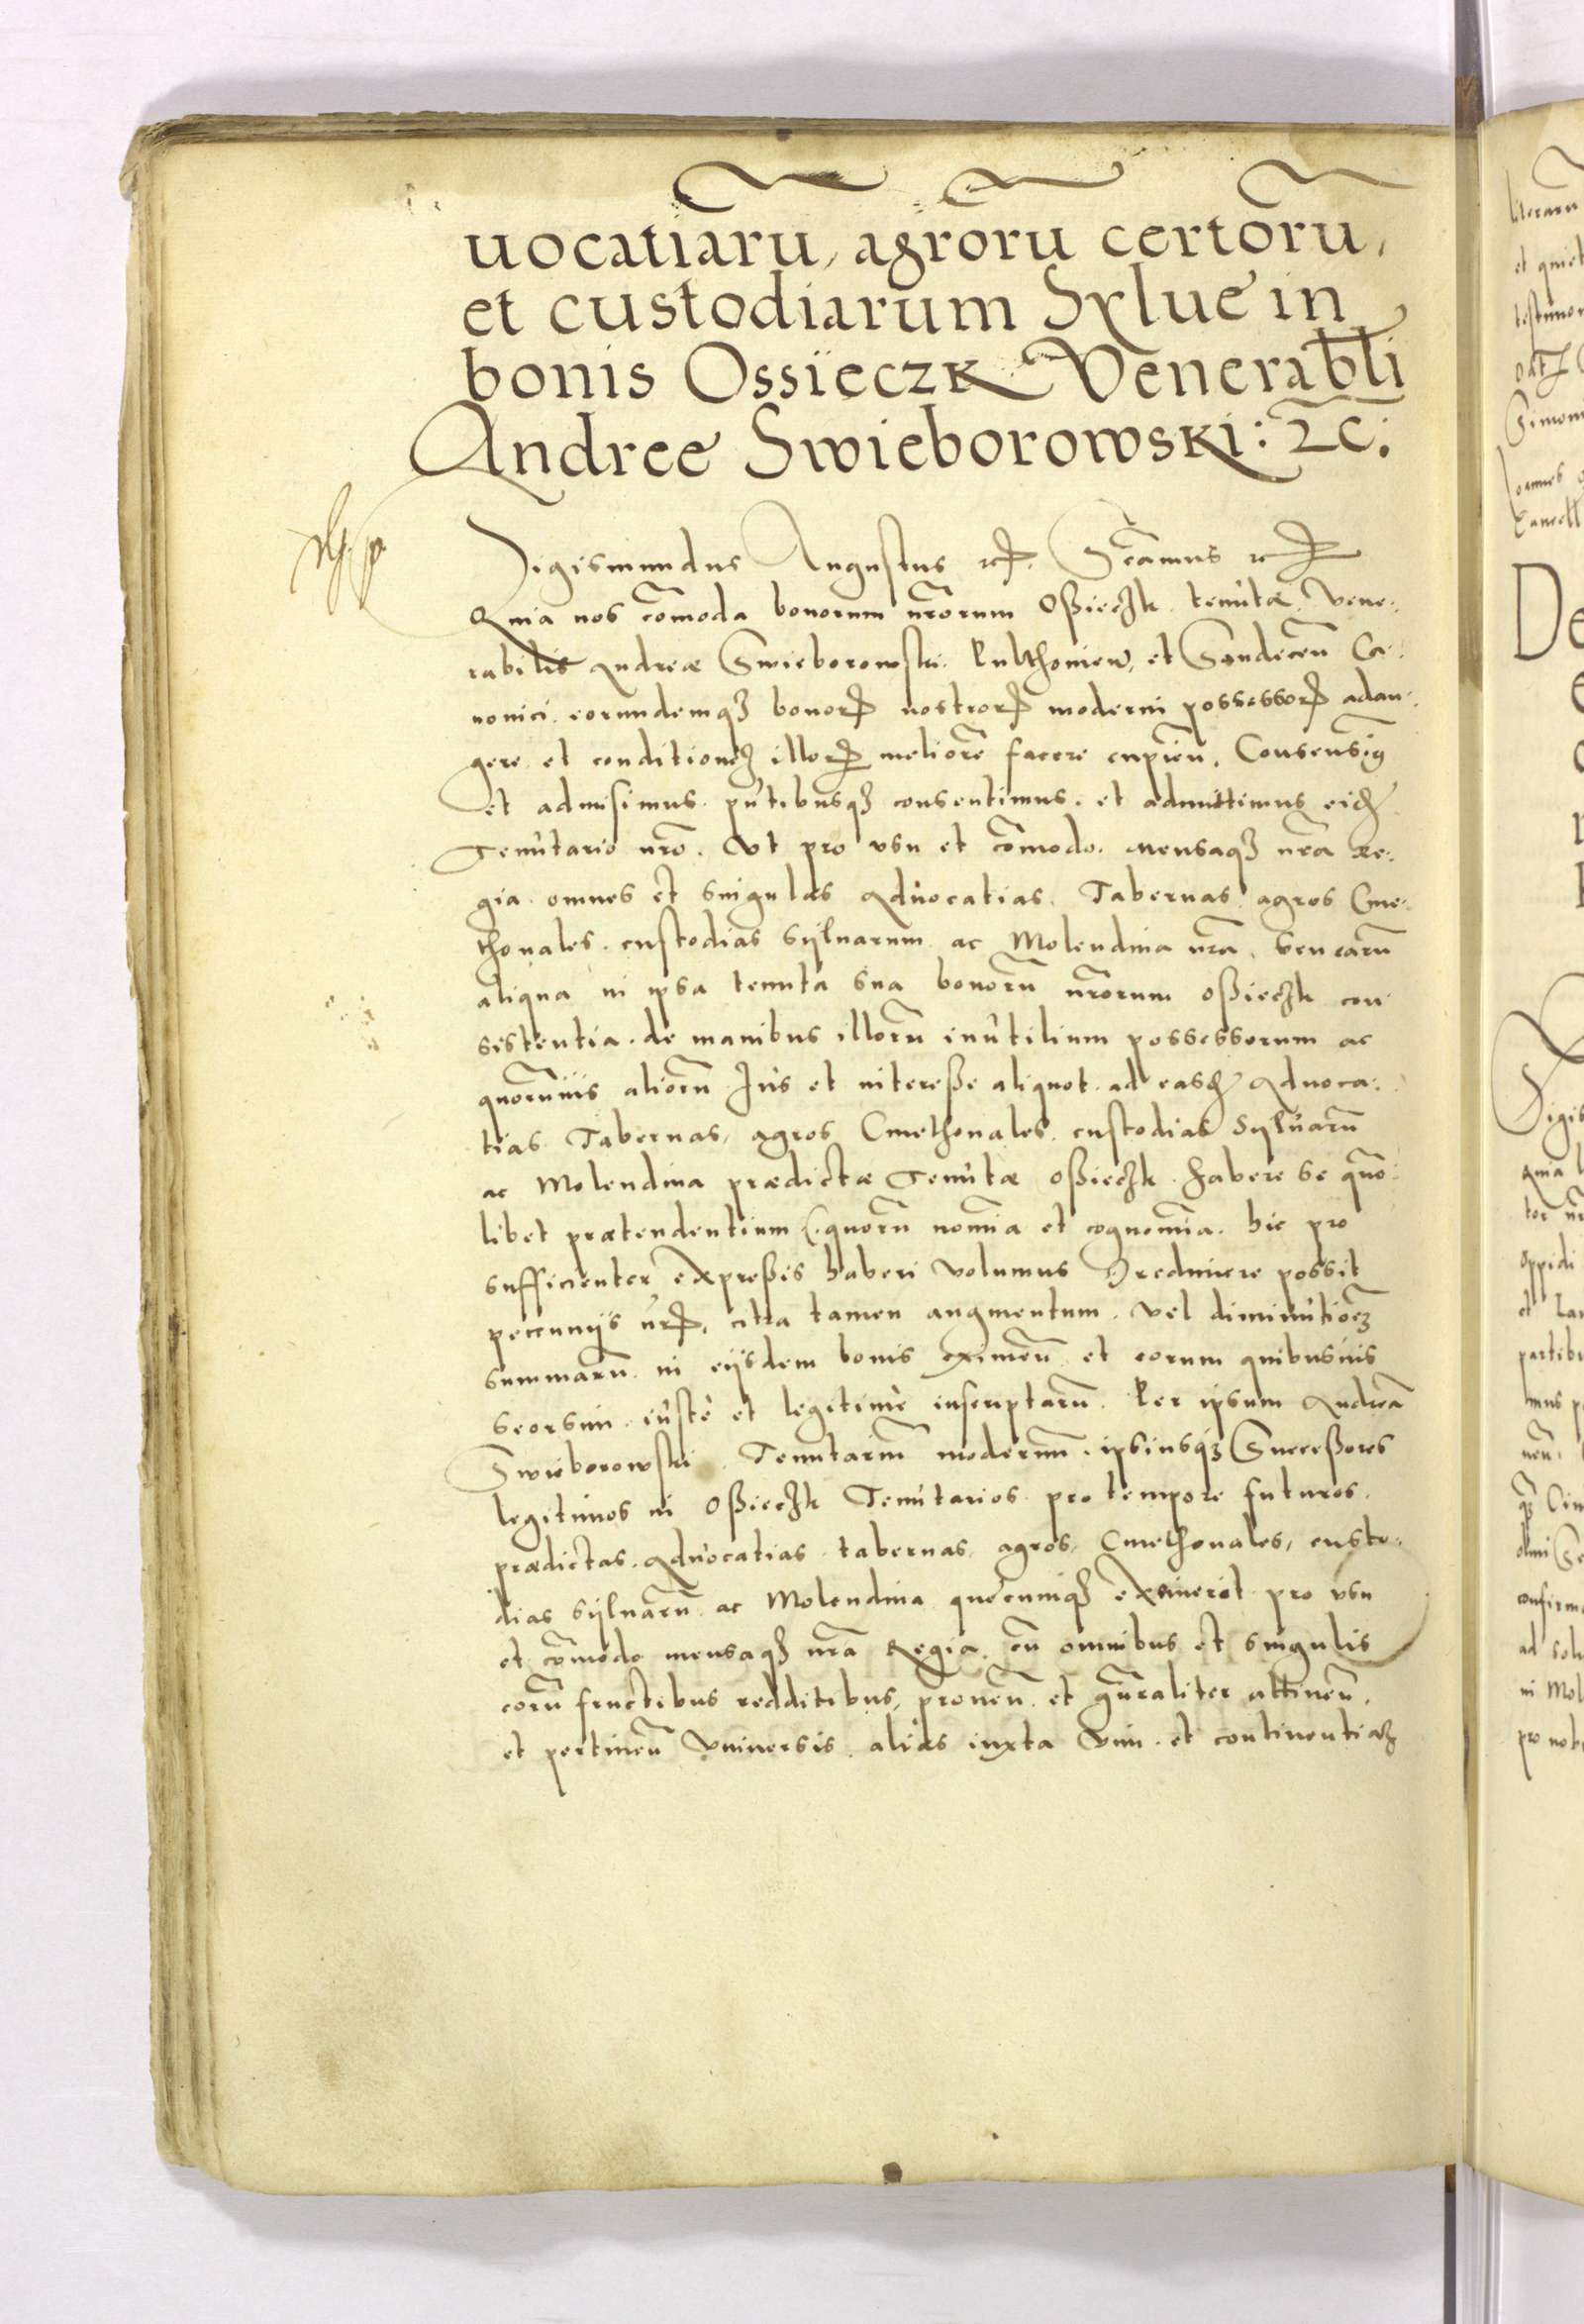 uocatiaru̅, agroru̅ certoru̅,
et custodiarum Sylue in
bonis Ossieczk Venerabli
Andree Swieborowski: ꝛc:
Sigismundus Augustus ꝛc. Sig̅camus ꝛc
Quia nos co̅moda bonorum nr̅orum Oßieczk tenutæ, Vene-
rabilis Andreæ Swieborowski Kulthoniew, et Sandecen̅ Ca-
nonici eorundemqꝫ bonorꝝ nostrorꝝ moderni possessorꝝ adau-
gere et conditioneꝫ illorꝝ meliore̅ facere cupien̅. Consensimꝰ
et admisimus. pn̅tibusqꝫ consentimus. et admittimus eidꝫ
Tenutario nr̅o. Vt pro vsu et co̅modo. mensaqꝫ nr̅a Re-
gia omnes et singulas Aduocatias. Tabernas agros Cme-
thonales. custodias syluarum ac Molendina nr̅a. seu earu̅
aliqua in ipsa tenuta sua bonoru̅ nr̅orum Oßieczk con-
sistentia. de manibus illoru̅ inutilium possessorum ac
quoru̅uis alioru̅ Ius et intereße aliquot ad easdꝫ Aduoca-
tias Tabernas, agros Cmethonales. custodias Syluaru̅
ac Molendina prædictæ Tenutæ Oßieczk habere se quo-
libet prætendentium (quoru̅ nomi̅a et cognomi̅a. hic pro
sufficienter expreßis haberi volumus) redimere possit
peccunijs nr̅ꝝ, citra tamen augmentum. vel diminutio̅eꝫ
summaru̅ in eijsdem bonis eximen̅ et eorum quibusuis
seorsim. iuste et legitime inscriptaru̅. Per ipsum Andrea̅
Swieborowski Tenutariu̅ modernu̅. ipsiusqꝫ Succeßores
legitimos in Oßieczk Tenutarios pro tempore futuros.
prædictas Aduocatias tabernas agros, Cmethonales, custo-
dias syluaru̅ ac Molendina quecumqꝫ exemerit pro vsu
et co̅modo mensaqꝫ nr̅a Regia cu̅ omnibus et singulis
eoru̅ fructibus redditibus, prouen̅. et gn̅raliter attinen̅.
et pertinen̅ Vniuersis. alias iuxta Vim. et continentiaꝫ